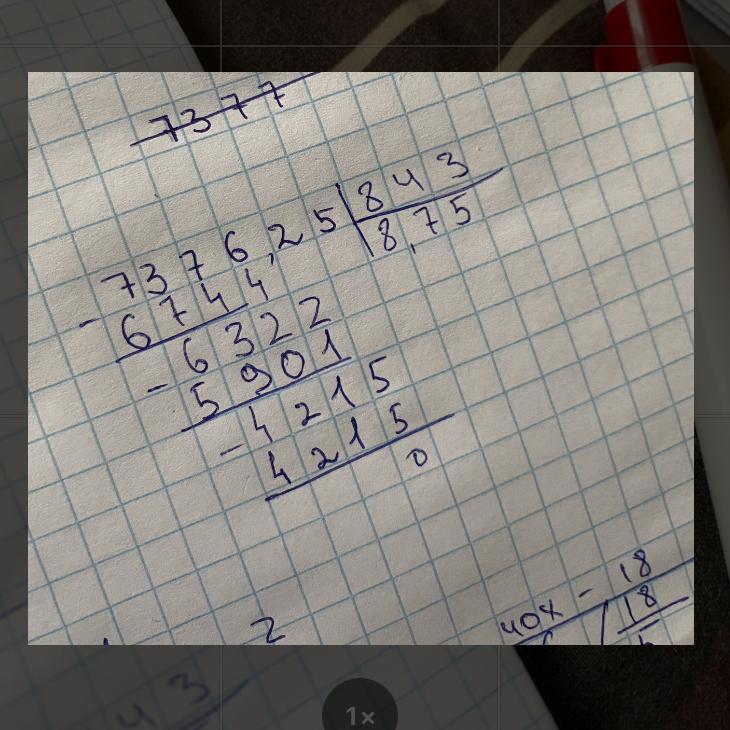 7377
7376,25 843
8,75
- 6744
- 6322
5901
- 4215
4215
0
40x - 18
18
2
43
1×